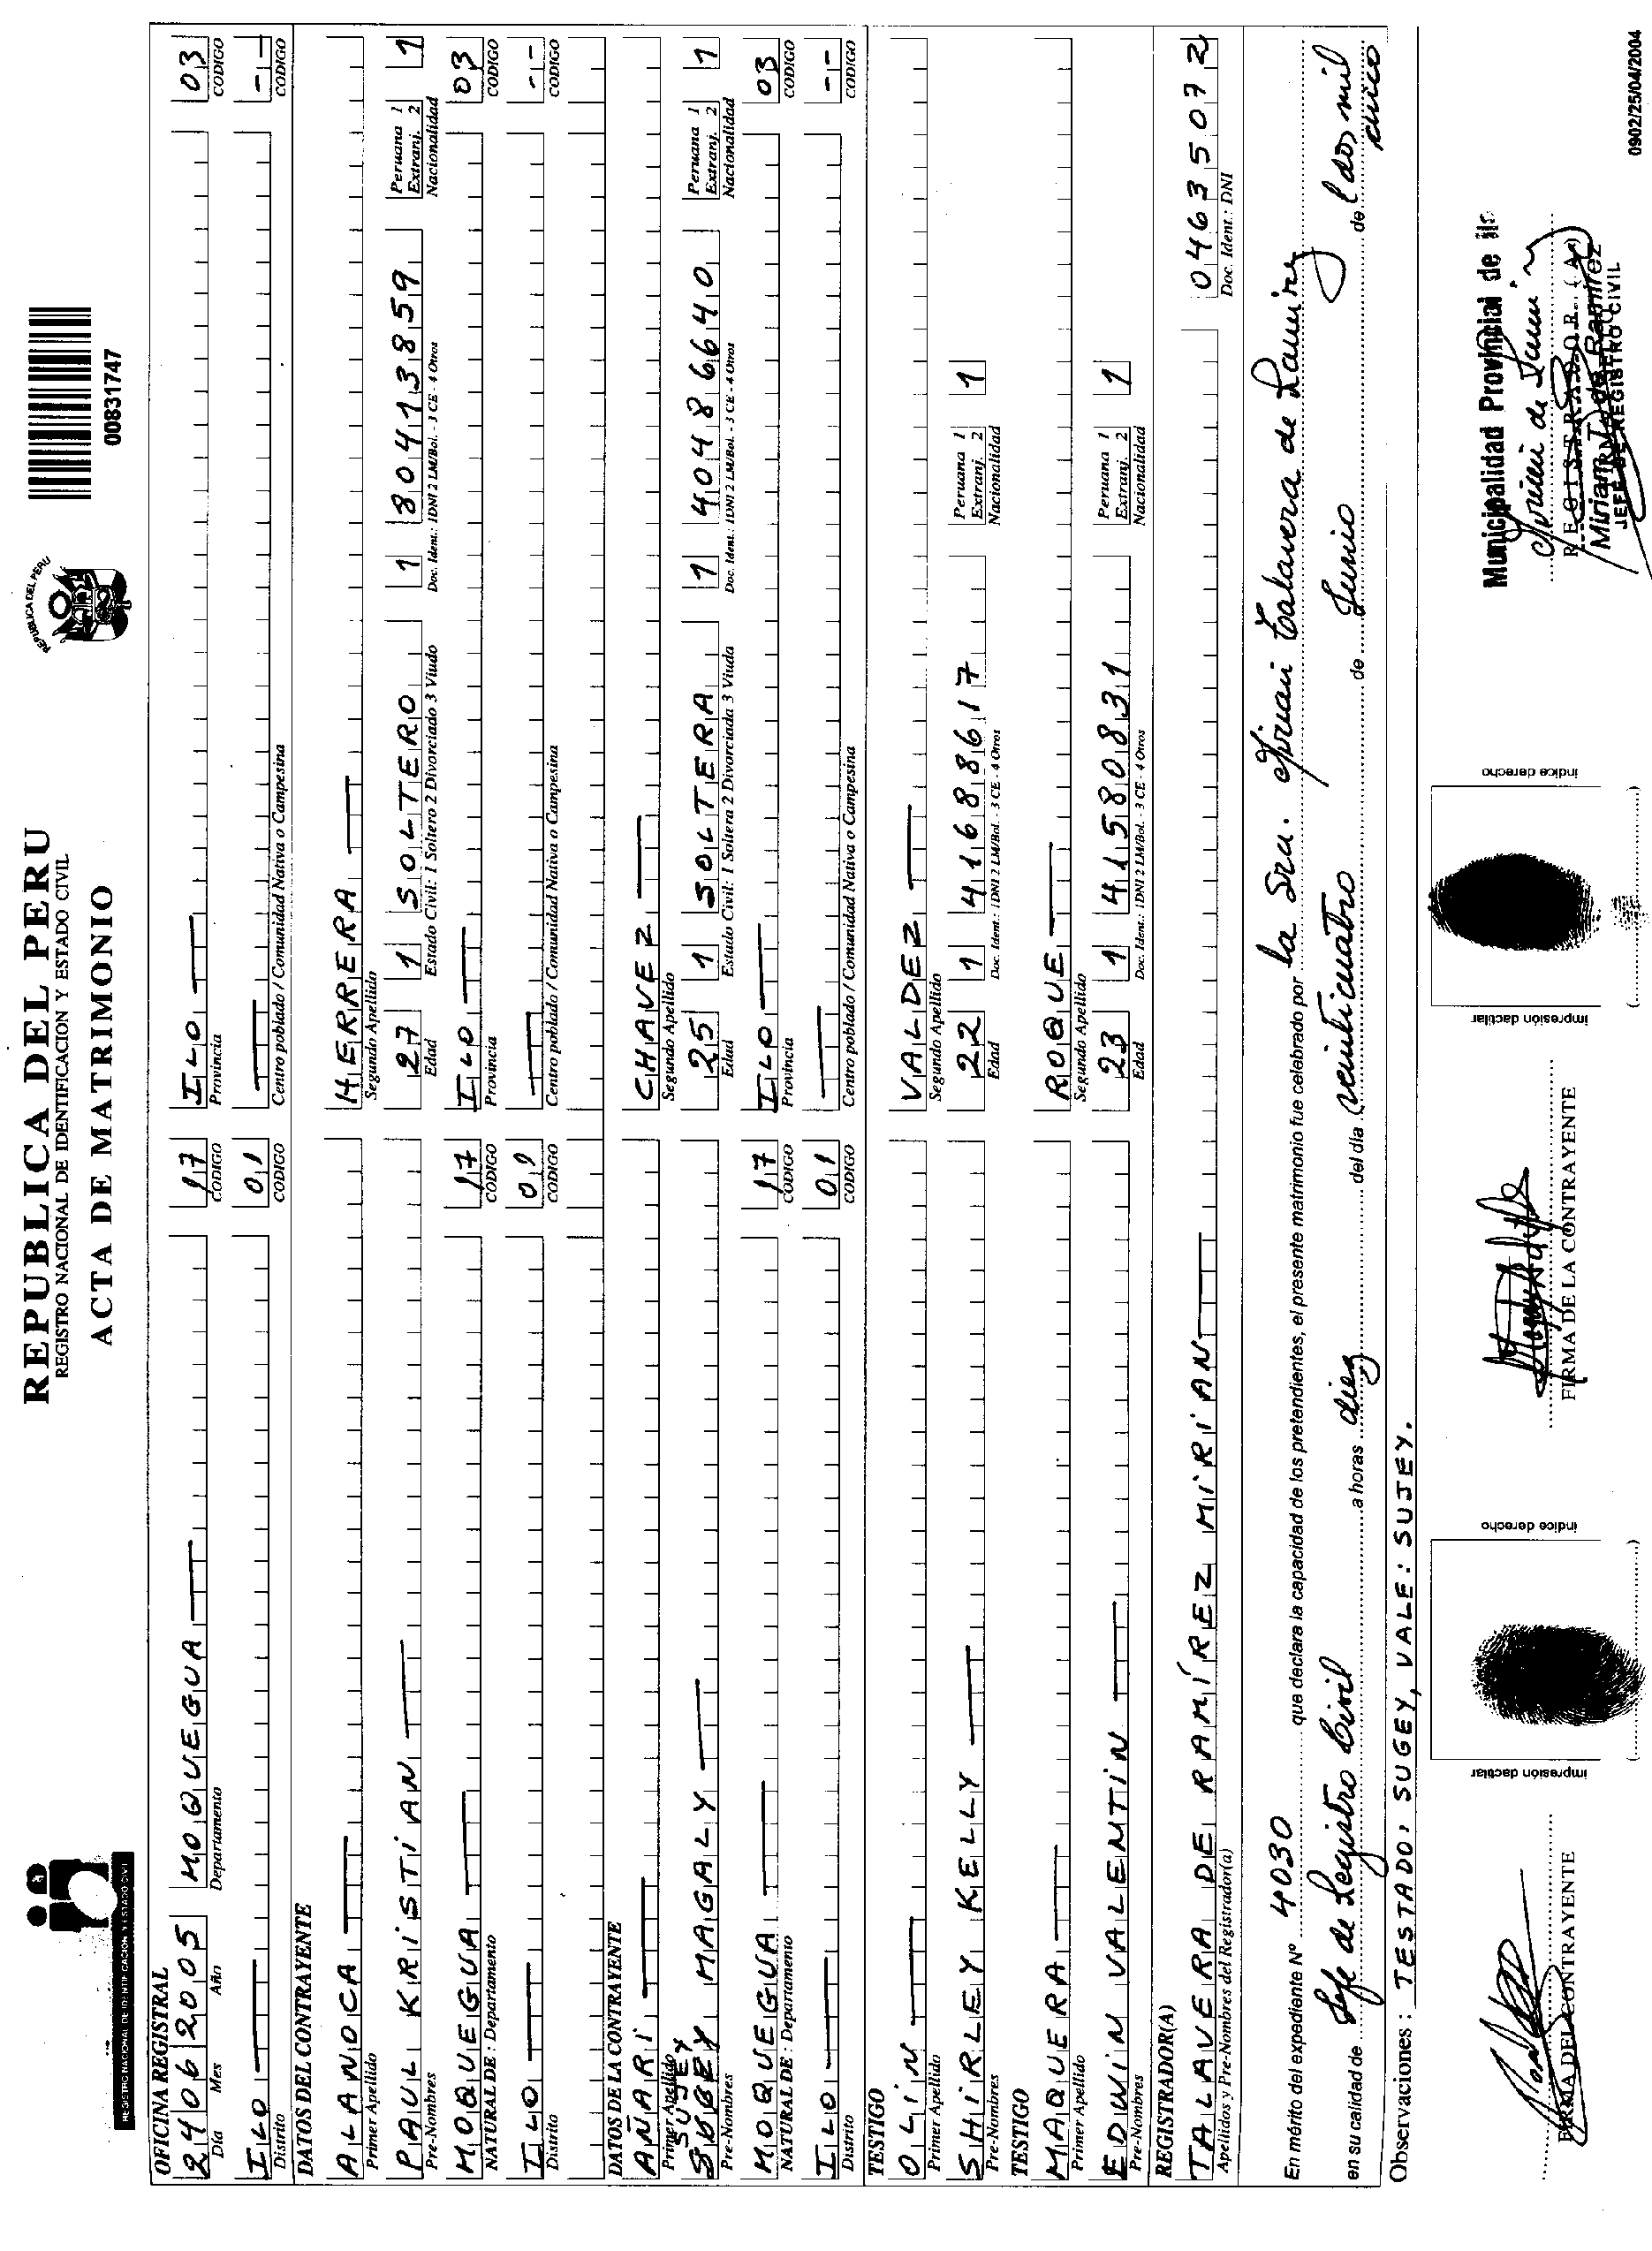 REPUBLICA DEL PERU
REGISTRO NACIONAL DE IDENTIFICACION Y ESTADO CIVIL
ACTA DE MATRIMONIO
REGISTRO NACIONAL DE IDENTIFICACION Y ESTADO CIVIL
REPUBLICA DEL PERU
00831747
OFICINA REGISTRAL
24 06 2005 MOQUEGUA 17 ILO 03
Día Mes Año Departamento CODIGO Provincia CODIGO
ILO 01 --
Distrito CODIGO Centro poblado / Comunidad Nativa o Campesina CODIGO
DATOS DEL CONTRAYENTE
ALANOCA HERRERA
Primer Apellido Segundo Apellido
PAUL KRISTIAN 27 1 SOLTERO 1 80413859 Peruana 1 Extranj. 2 1
Pre-Nombres Edad Estado Civil: 1 Soltero 2 Divorciado 3 Viudo Doc. Ident.: 1DNI 2 LM/Bol. - 3 CE - 4 Otros Nacionalidad
MOQUEGUA 17 ILO 03
NATURAL DE : Departamento CODIGO Provincia CODIGO
ILO 01 --
Distrito CODIGO Centro poblado / Comunidad Nativa o Campesina CODIGO
DATOS DE LA CONTRAYENTE
AÑARI CHAVEZ
Primer Apellido Segundo Apellido
SUJEY
SUGEY MAGALY 25 1 SOLTERA 1 40486640 Peruana 1 Extranj. 2 1
Pre-Nombres Edad Estado Civil: 1 Soltera 2 Divorciada 3 Viuda Doc. Ident.: 1DNI 2 LM/Bol. - 3 CE - 4 Otros Nacionalidad
MOQUEGUA 17 ILO 03
NATURAL DE : Departamento CODIGO Provincia CODIGO
ILO 01 --
Distrito CODIGO Centro poblado / Comunidad Nativa o Campesina CODIGO
TESTIGO
OLIN VALDEZ
Primer Apellido Segundo Apellido
SHIRLEY KELLY 22 1 41688617 Peruana 1 Extranj. 2 1
Pre-Nombres Edad Doc. Ident.: 1DNI 2 LM/Bol. - 3 CE - 4 Otros Nacionalidad
TESTIGO
MAQUERA ROQUE
Primer Apellido Segundo Apellido
EDWIN VALENTIN 23 1 41580831 Peruana 1 Extranj. 2 1
Pre-Nombres Edad Doc. Ident.: 1DNI 2 LM/Bol. - 3 CE - 4 Otros Nacionalidad
REGISTRADOR(A)
TALAVERA DE RAMÍREZ MIRIAN 04635072
Apellidos y Pre-Nombres del Registrador(a) Doc. Ident.: DNI
En mérito del expediente Nº 4030 que declara la capacidad de los pretendientes, el presente matrimonio fue celebrado por la Sra. Mirian Talavera de Ramirez
en su calidad de Jefe de Registro Civil a horas diez del día veinticuatro de Junio de l dos mil cinco
Observaciones : TESTADO: SUGEY, VALE: SUJEY.
FIRMA DEL CONTRAYENTE
impresión dactilar índice derecho
FIRMA DE LA CONTRAYENTE
impresión dactilar índice derecho
Municipalidad Provincial de Ilo
REGISTRADOR (A)
Miriam T. de Ramirez
JEFE DE REGISTRO CIVIL
0902/25/04/2004